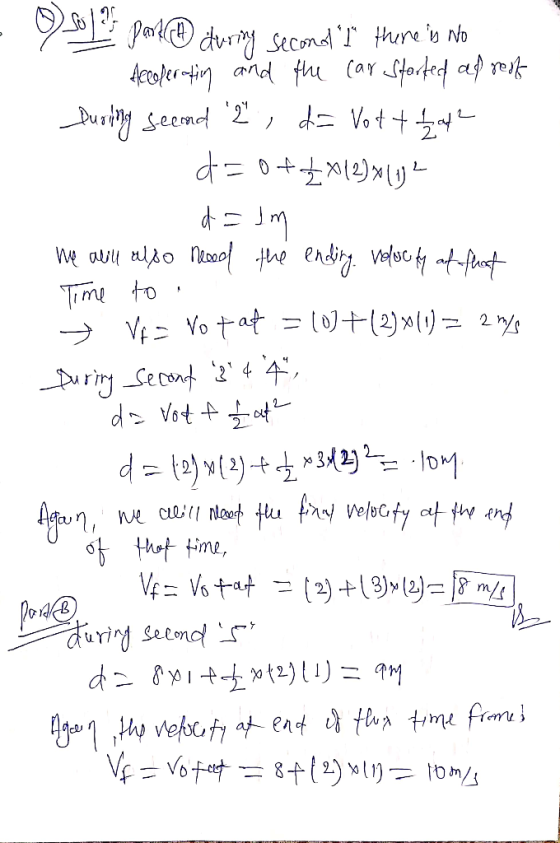 Sol
Part (A) during second '1' there is No
Accelerating and the car started at rest
During second '2', d = V₀t + 1/2 at²
d = 0 + 1/2 × (2) × (1)²
d = 1m
We will also need the ending velocity at that
Time to
→ Vf = V₀ + at = (0) + (2) × (1) = 2 m/s
During second '3' & '4',
d = V₀t + 1/2 at²
d = (2) × (2) + 1/2 × 3 × (2)² = 10m.
Again, we will need the final velocity at the end
of that time,
Vf = V₀ + at = (2) + (3) × (2) = 8 m/s
Part (B)
during second '5'
d = 8×1 + 1/2 × (2) (1) = 9m
Again, the velocity at end of this time frame;
Vf = V₀ + at = 8 + (2) × (1) = 10 m/s